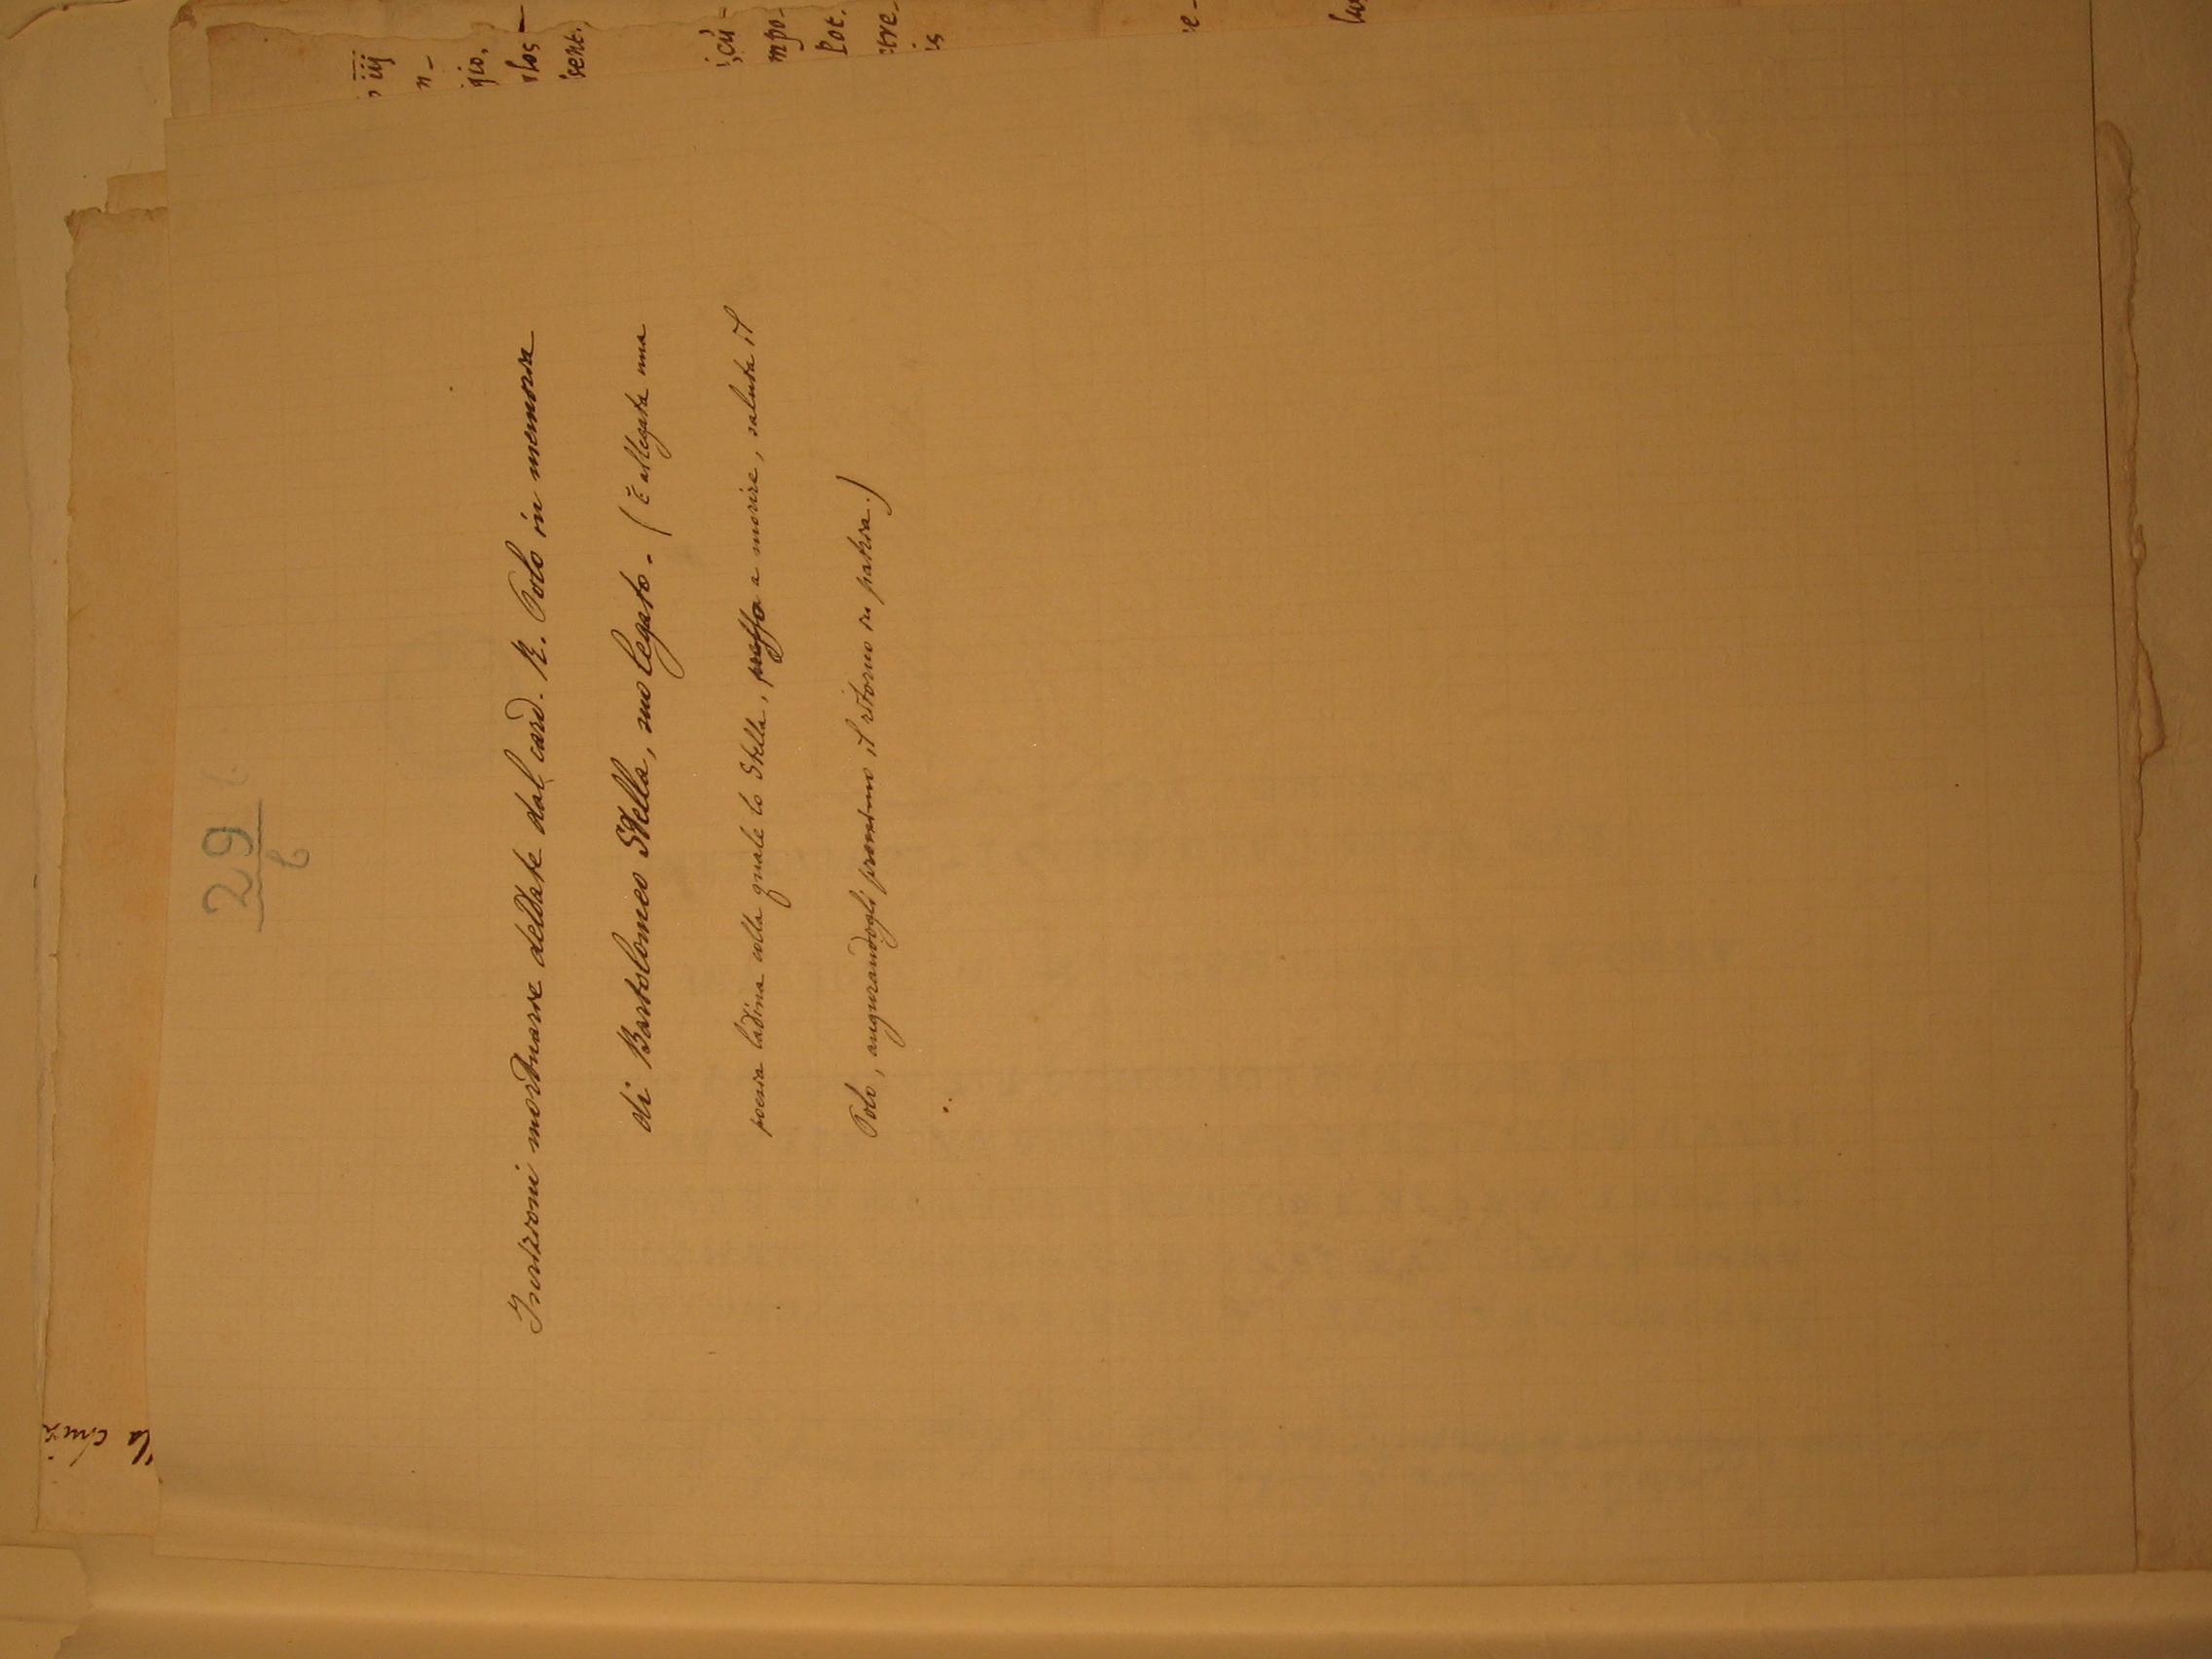 29 b
b
Iscrizioni mortuarie dettate dal card. R. Polo in memoria
di Bartolomeo Stella, suo legato. - (È allegata una
poesia latina colla quale lo Stella, presso a morire, saluta il
Polo, augurandogli prossimo il ritorno in patria.)
iij
n-
gio.
los-
sent.
cu-
mpo-
pot.
tre-
is
e-